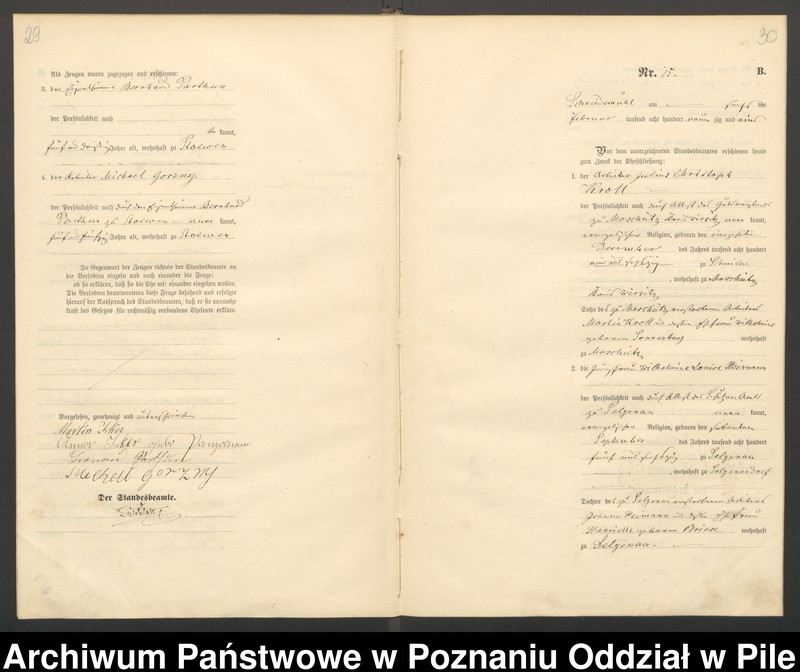 29
Als Zeugen waren zugezogen und erschienen:
3. der Eigenthümer Bernhard Parthun
der Persönlichkeit nach
be kannt,
fünf und dreißig Jahre alt, wohnhaft zu Stoewen
4. der Arbeiter Michael Gorzny
der Persönlichkeit nach durch den Eigenthümer Bernhard
Parthun zu Stoewen aner kannt,
fünf und fünfzig Jahre alt, wohnhaft zu Stoewen
In Gegenwart der Zeugen richtete der Standesbeamte an
die Verlobten einzeln und nach einander die Frage:
ob sie erklären, daß sie die Ehe mit einander eingehen wollen.
Die Verlobten beantworteten diese Frage bejahend und erfolgte
hierauf der Ausspruch des Standesbeamten, daß er sie nunmehr
kraft des Gesetzes für rechtmäßig verbundene Eheleute erkläre.
Vorgelesen, genehmigt und unterschrieben
Martin
Anna
Parthun
Michell Gorzny
Der Standesbeamte.
30
Nr. 15. B.
Schneidemühl am sechs ten
Februar tausend acht hundert neun zig und eins
Vor dem unterzeichneten Standesbeamten erschienen heute
zum Zweck der Eheschließung:
1. der Arbeiter Julius Christoph
Kroll
der Persönlichkeit nach durch Attest des Gutsvorstands
zu Maschütz Kreis Wirsitz aner kannt,
evangelischer Religion, geboren den
December des Jahres tausend acht hundert
ein und sechszig zu
, wohnhaft zu Maschütz
Kreis Wirsitz
Sohn des zu Maschütz verstorbenen Arbeiters
Martin Kroll und dessen Ehefrau Wilhelmine
geborenen Sonnenburg wohnhaft
zu Maschütz
2. die Jungfrau Wilhelmine Louise Heimann
der Persönlichkeit nach durch Attest des Schulzen Amts
zu Selgenau aner kannt,
evangelischer Religion, geboren den siebenten
September des Jahres tausend acht hundert
fünf und sechszig zu Selgenau
, wohnhaft zu Selgenau
Tochter des zu Selgenau verstorbenen Arbeiters
Johann Heimann und dessen Ehefrau
Henriette geborenen Briese wohnhaft
zu Selgenau.
Archiwum Państwowe w Poznaniu Oddział w Pile